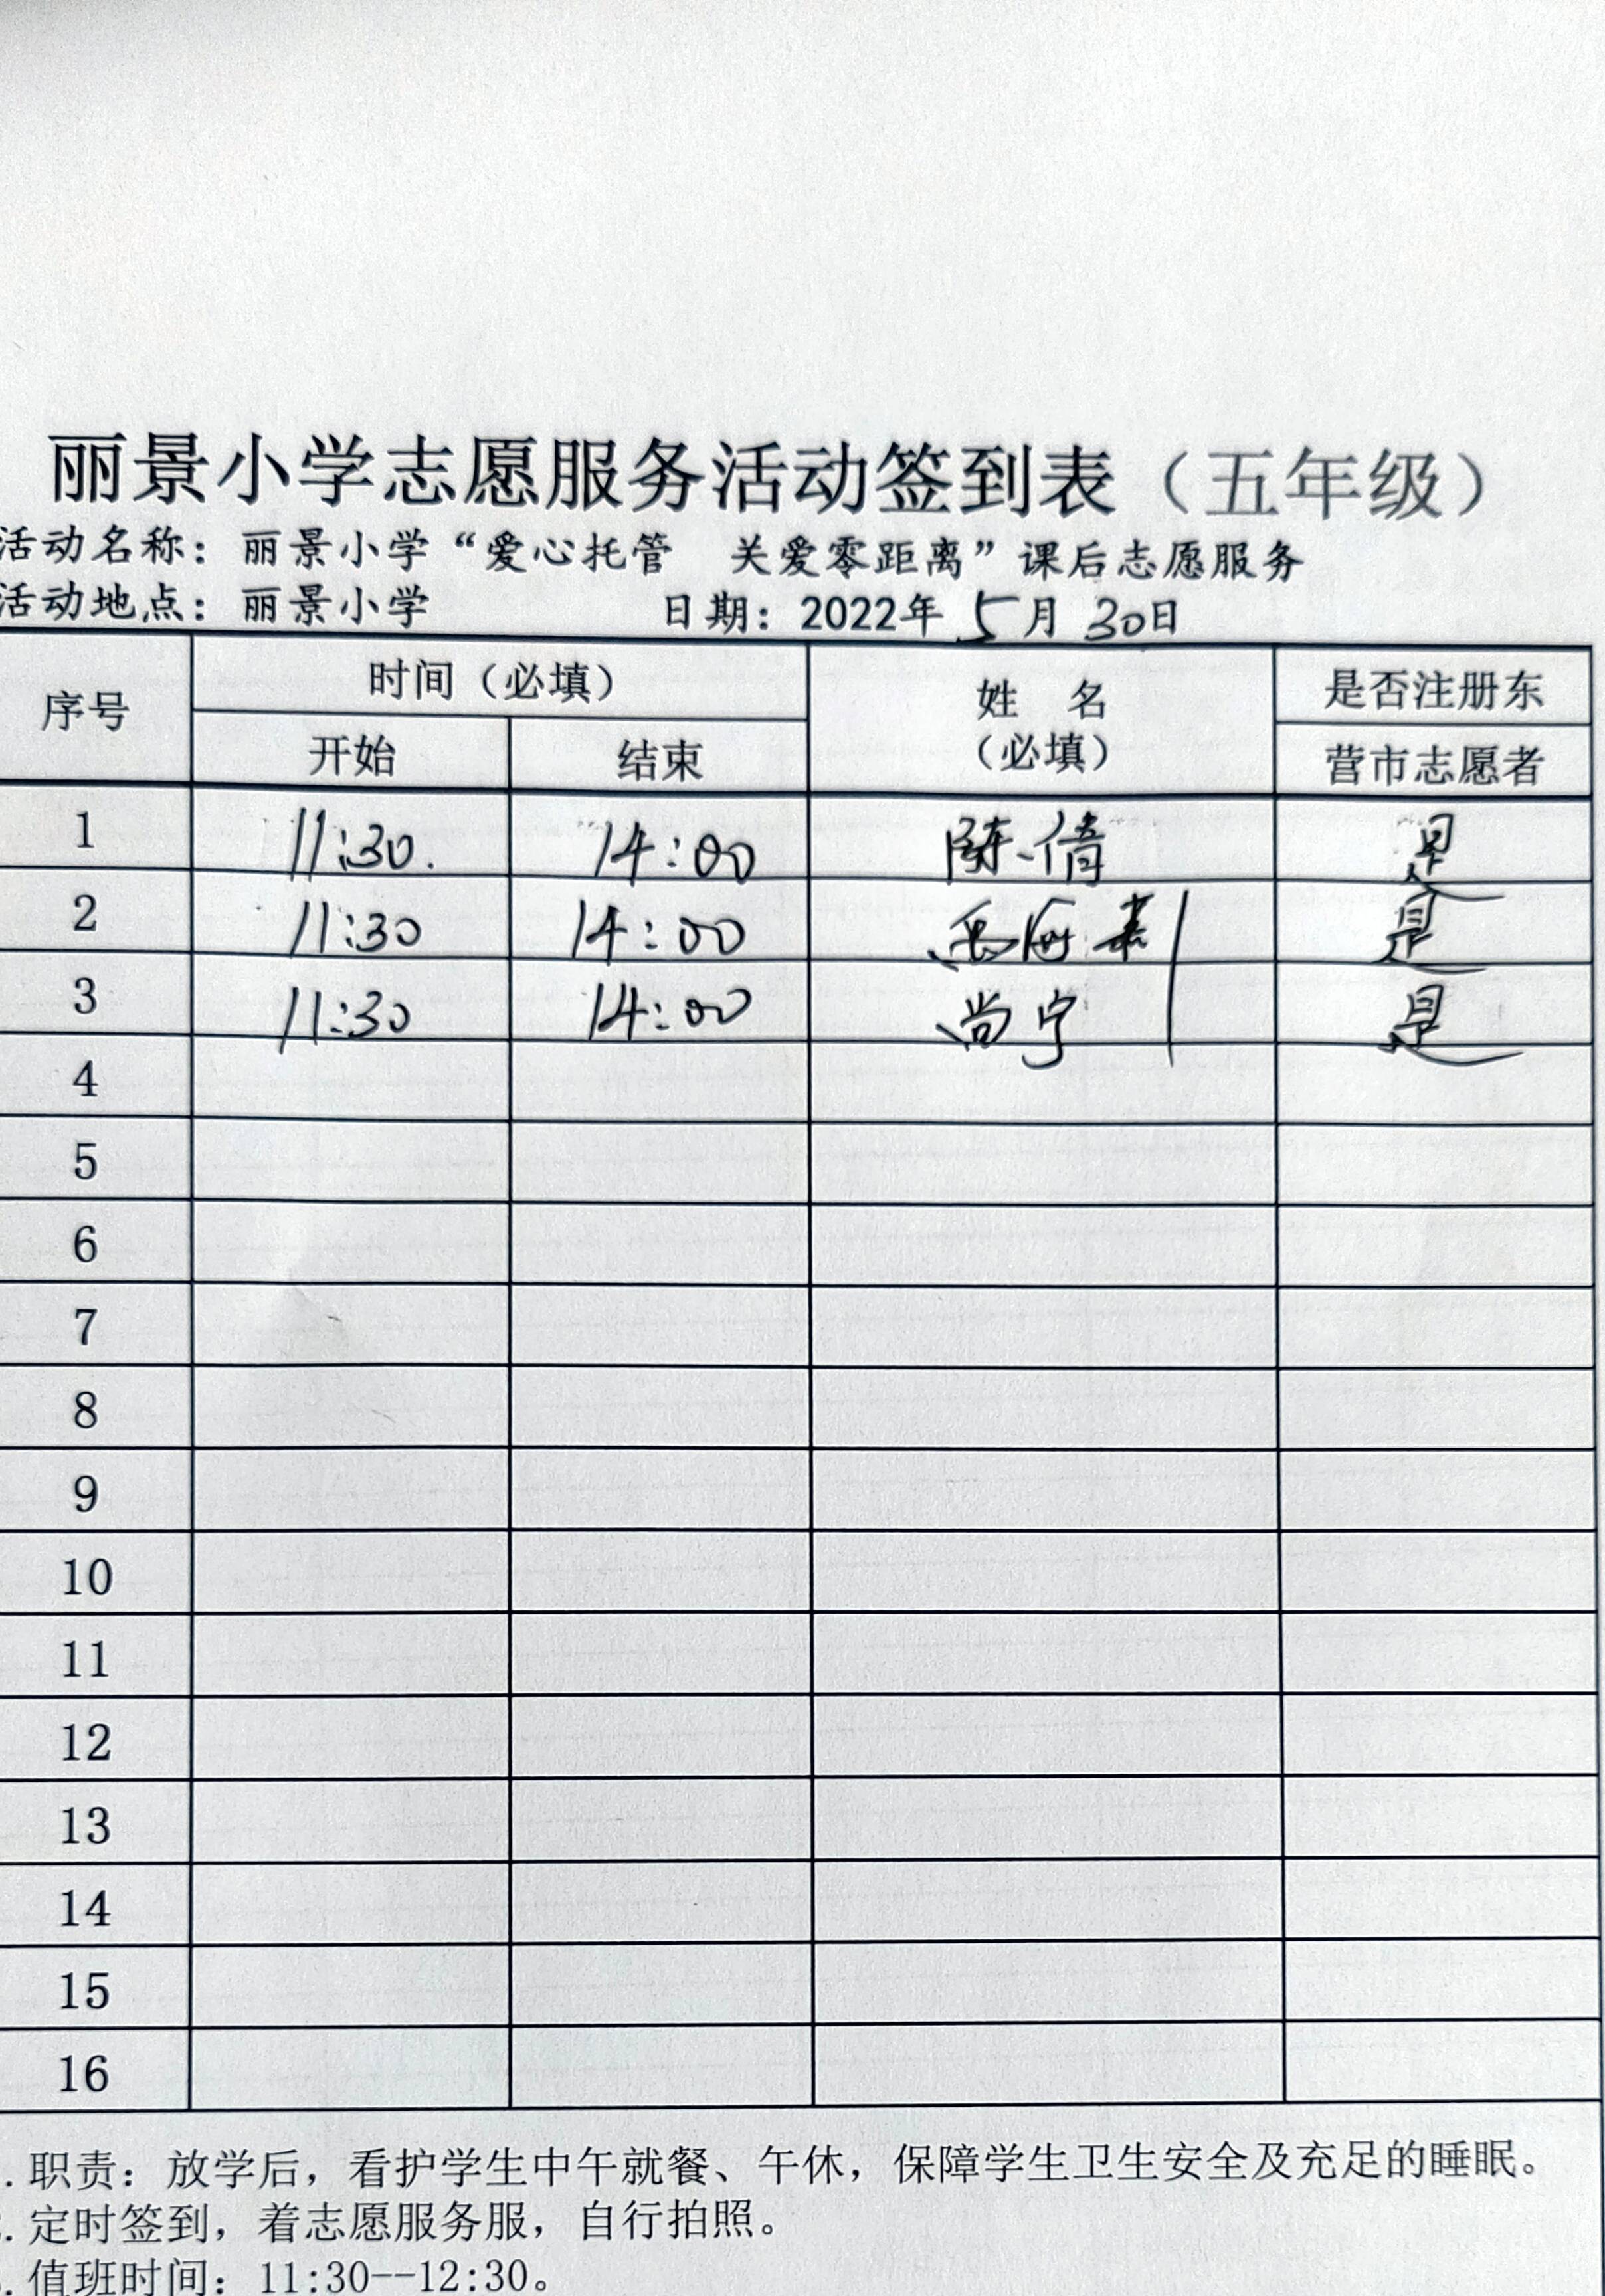 丽景小学志愿服务活动签到表（五年级）
活动名称：丽景小学“爱心托管 关爱零距离”课后志愿服务
活动地点：丽景小学 日期：2022年5月30日
序号 时间（必填） 姓 名 是否注册东
开始 结束 （必填） 营市志愿者
1 11:30. 14:00 陈倩 是
2 11:30 14:00 是
3 11:30 14:00 尚宁 是
4
5
6
7
8
9
10
11
12
13
14
15
16
.职责：放学后，看护学生中午就餐、午休，保障学生卫生安全及充足的睡眠。
.定时签到，着志愿服务服，自行拍照。
.值班时间：11:30--12:30。